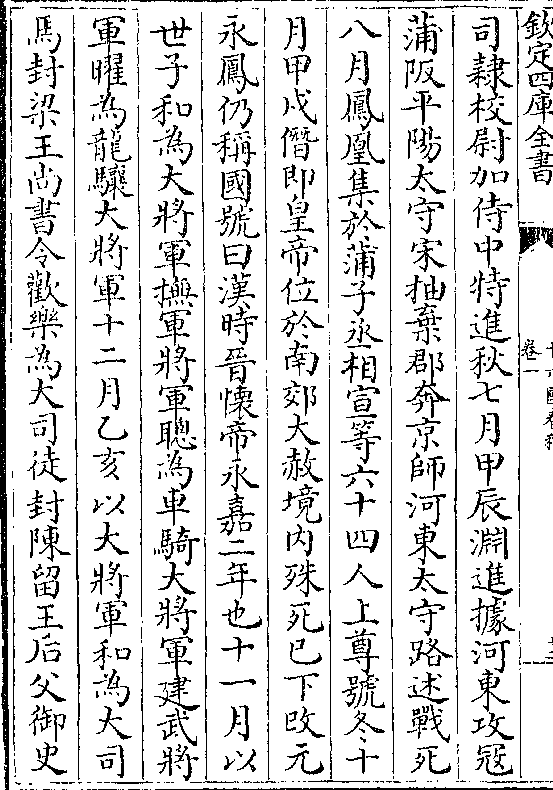 欽定四庫全書
卷一
司隸校尉加侍中特進秋七月甲辰淵進據河東攻冠
蒲阪平陽太守宋抽棄郡奔京師河東太守路述戰死
八月鳳凰集於蒲子丞相宣等六十四人上尊號冬十
月甲戌僭即皇帝位於南郊大赦境内殊死已下改元
永鳳仍稱國號曰漢時晉懷帝永嘉二年也十一月以
世子和為大將軍撫軍將軍聰為車騎大將軍建武將
軍曜為龍驤大將軍十二月乙亥以大將軍和為大司
馬封梁王尚書令歡樂為大司徒封陳留王后父御史